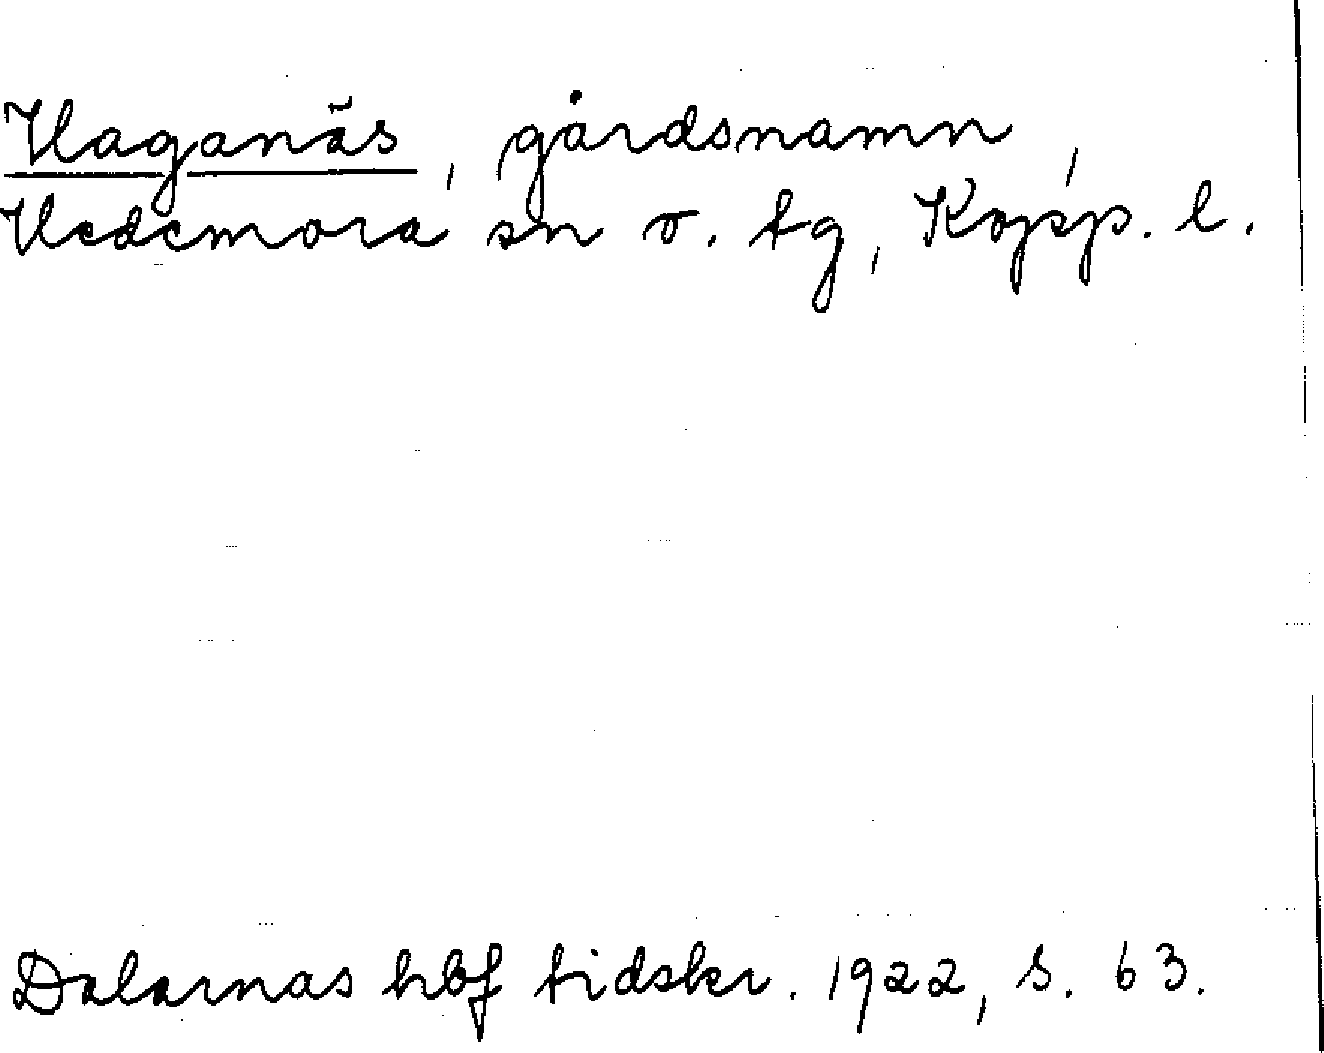 Vaganäs, gårdsnamn,
Vedemora sn o. tg, Kopp. l.
Dalarnas hbf tidskr. 1922, s. 63.